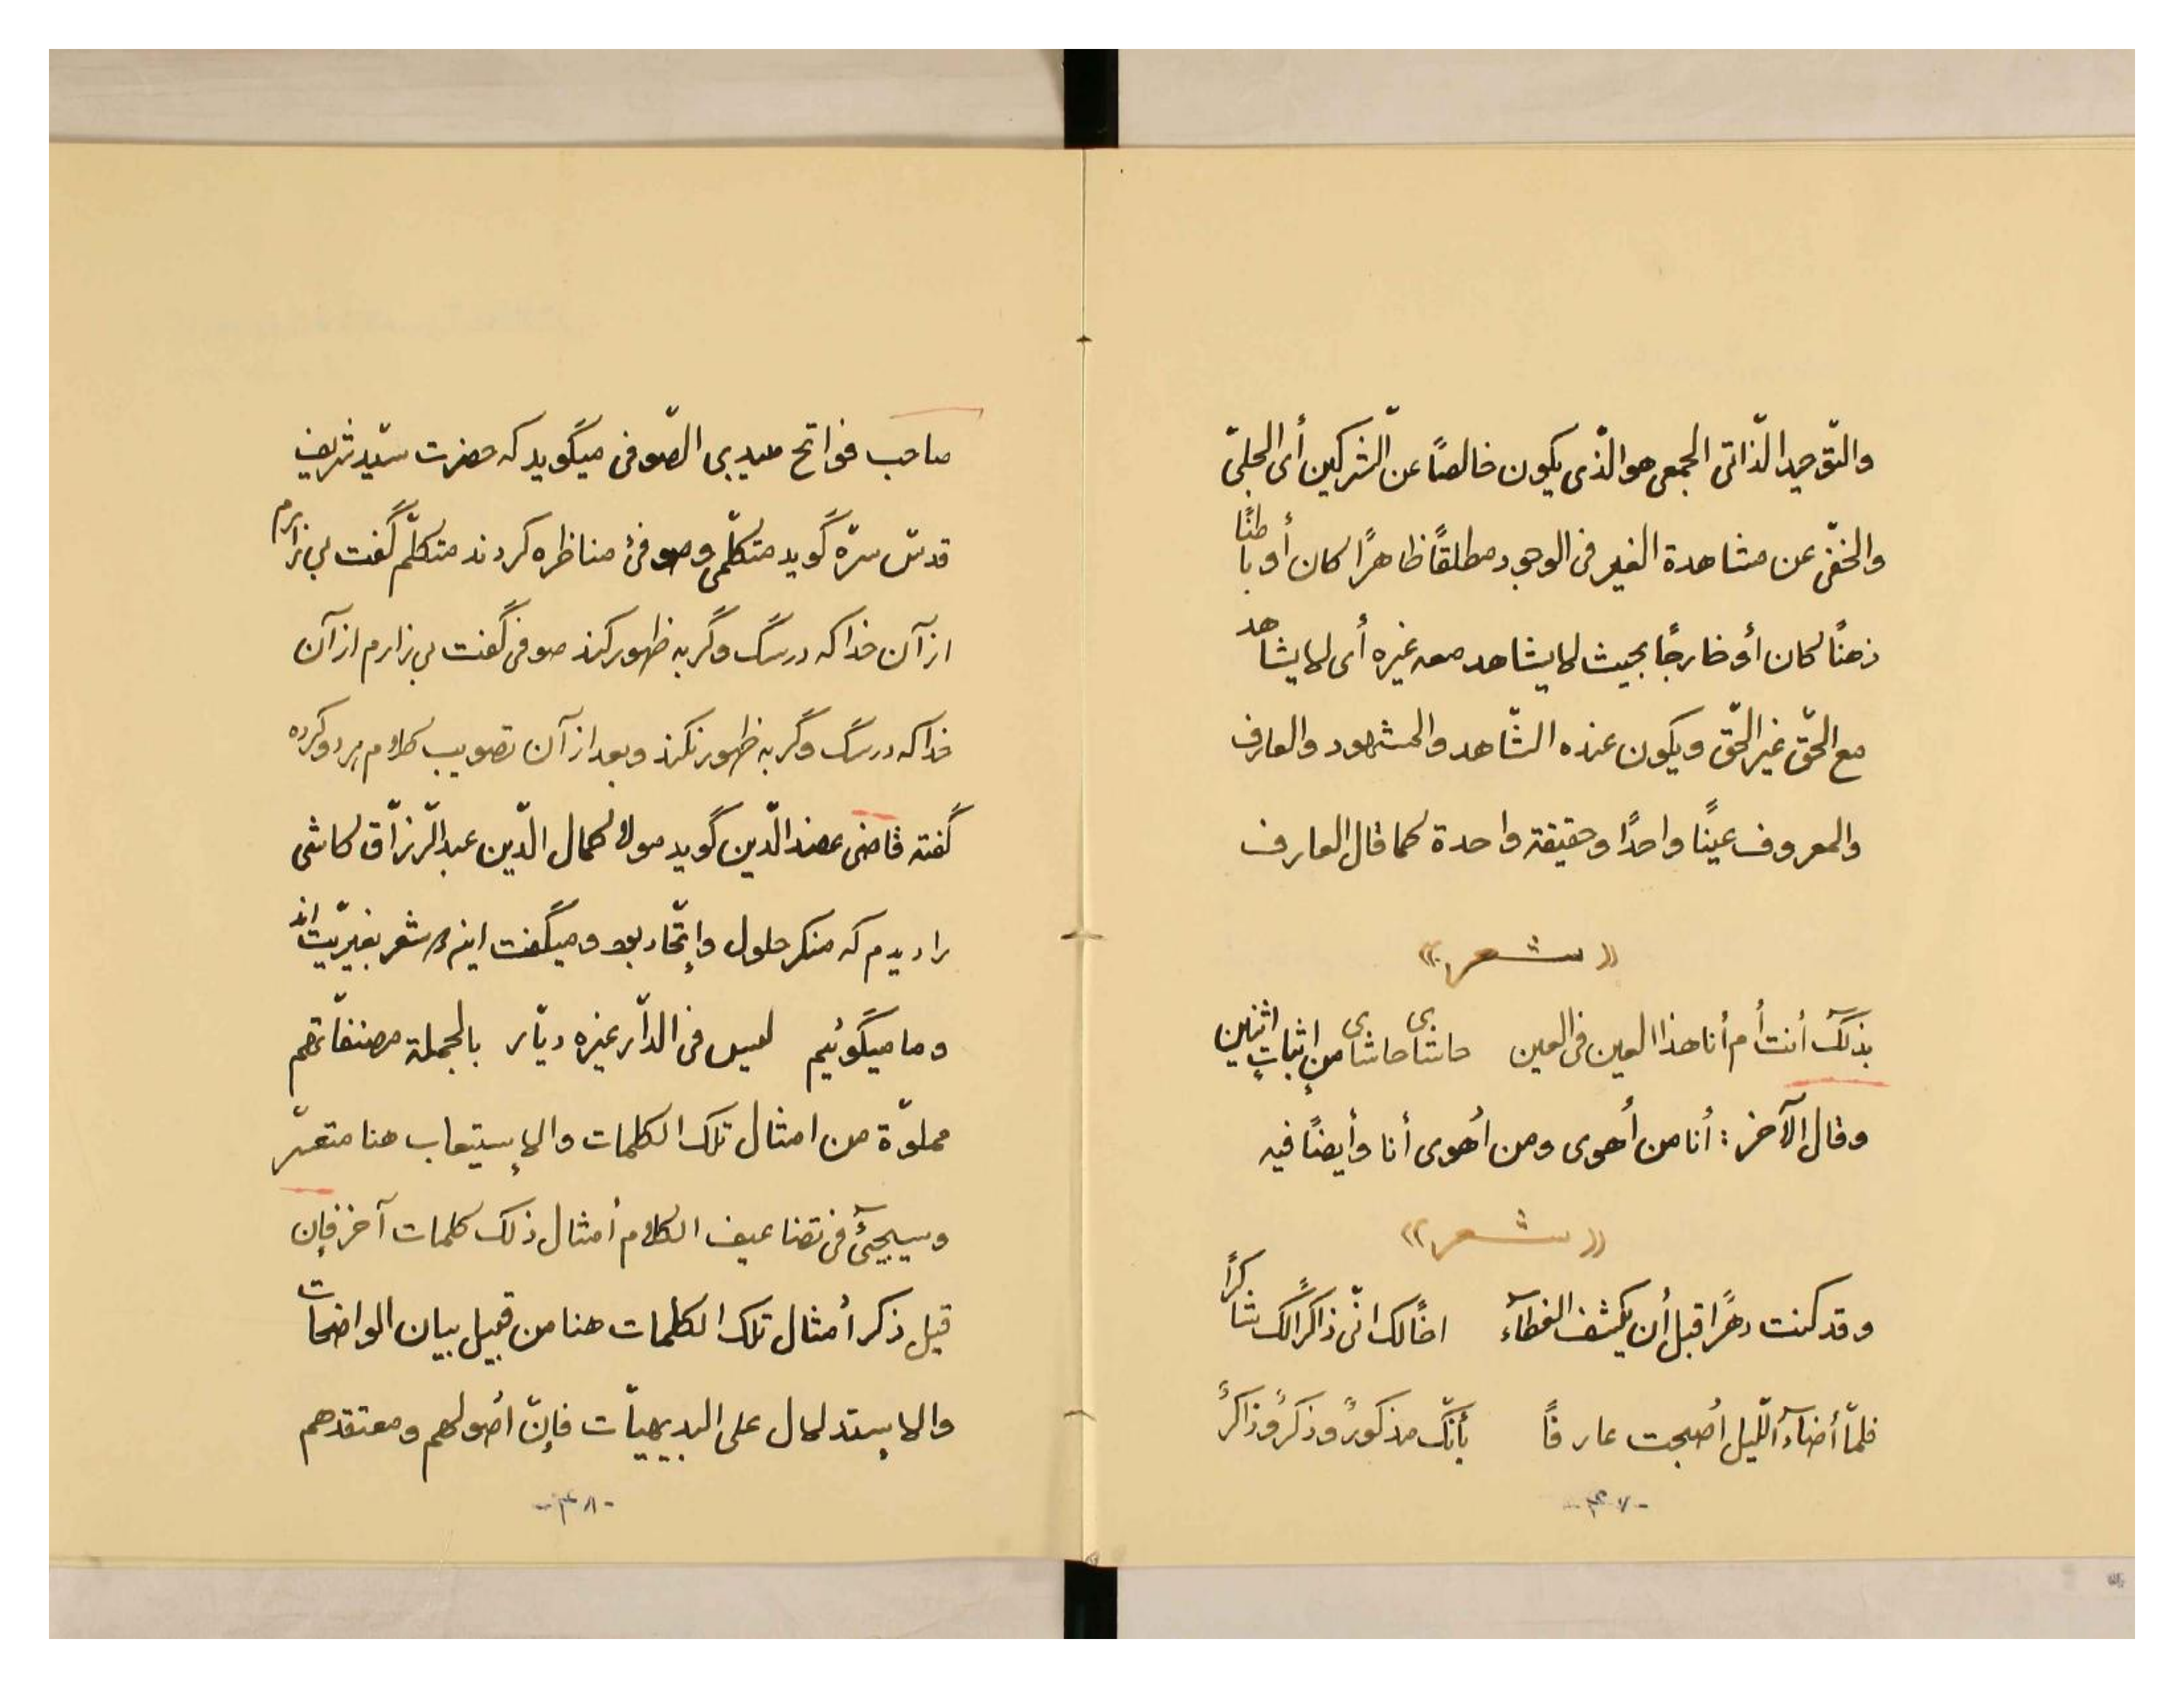 والتّوحيد الذّاتى الجمعى هو الذّى يكون خالصًا عن الشّركين أى الجلىّ
والخفّى عن مشاهدة الغير فى الوجود مطلقًا ظاهرًا كان أو باطنًا
ذهنًا كان أو خارجًا بحيث لا يشاهد معه غيره أى لا يشاهد
مع الحّق غير الحّق ويكون عنده الشّاهد والمشهود والعارف
والمعروف عينًا واحدًا وحقيقة واحدة كما قال العارف
«شعر»
بذلك أنت أم أنا هذا العين فى العين حاشاى حاشاى من إثباتِ اثنين
وقال الآخر: أنا من أهوى ومن أهوى أنا وأيضًا فيه
«شعر»
وقد كنت دهرًا قبل أن يكشف الغطآء اخًالك انّى ذاكرًا لك شاكرًا
فلمّا أضآء اللّيل أصبحت عارفًا بأنّك مذكورٌ وذكرٌ وذاكرٌ
-٤٧-
صاحب فواتح ميبدى الصّوفى ميگويد كه حضرت سيّد شريف
قدسّ سرّه گويد متكلّمى وصوفىء مناظره كردند متكلّم گفت بى زارم
از آن خدا كه در سگ وگربه ظهور كند صوفى گفت بى زارم از آن
خدا كه در سگ وگربه ظهور نكند وبعد از آن تصويب كلام هر دو كرده
گفته قاضى عضد الدّين گويد مولا كمال الدّين عبد الرّزّاق كاشى
را ديدم كه منكر حلول وإتّحاد بود وميگفت اينها مشعر بغيريّت اند
وما ميگوئيم ليس فى الدّار غيره ديّار بالجملة مصنفاتهم
مملوّة من امثال تلك الكلمات والإستيعاب هنا متعسّر
وسيجيئ فى تضاعيف الكلام أمثال ذلك كلمات آخر فإن
قيل ذكر أمثال تلك الكلمات هنا من قبيل بيان الواضحات
والإستدلال على البديهيّات فإنّ أصولهم ومعتقدهم
-٤٨-